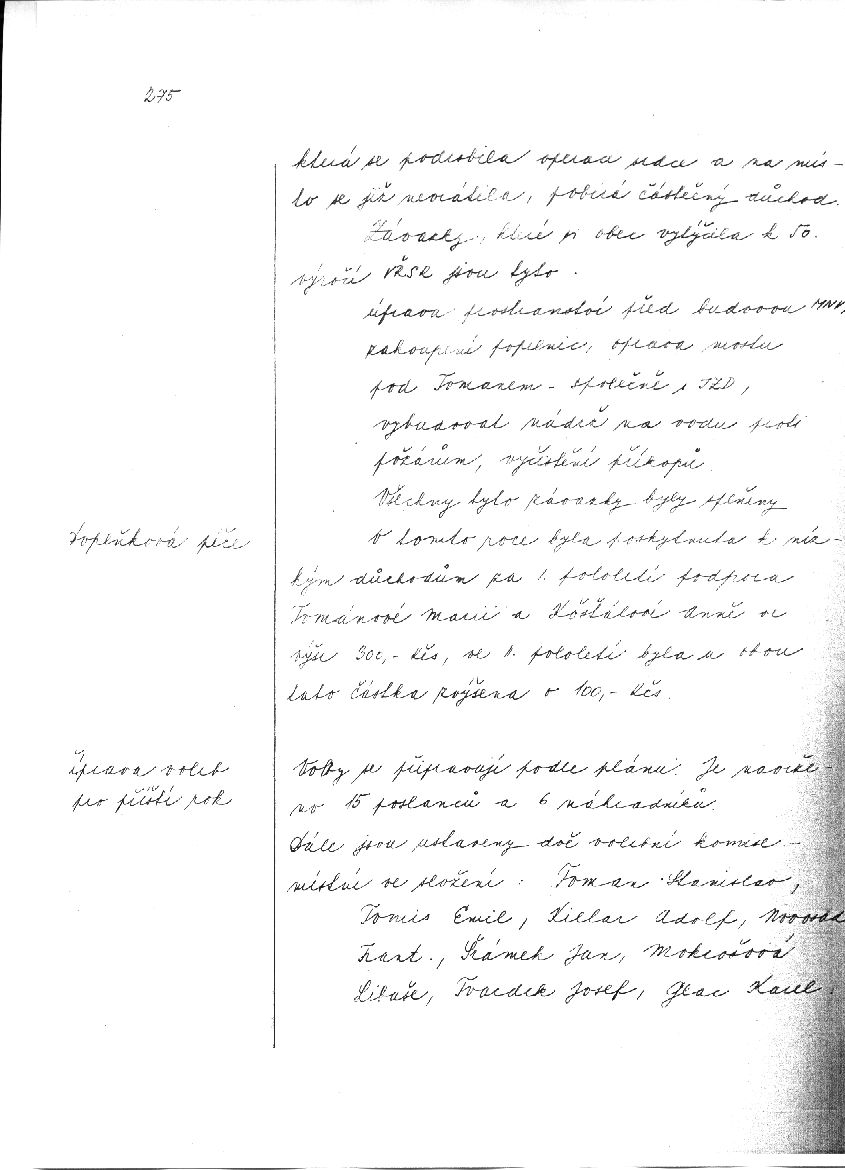 275
která se podrobila operaci srdce a na mís-
to se již nevrátila, pobírá částečný důchod.
Závazky, které si obec vytýčila k 50.
výročí VŘSR jsou tyto.
úprava prostranství před budovou MNV,
zakoupení popelnic, oprava mostu
pod Tomanem - společně s JZD,
vybudovat nádrž na vodu proti
požárům, vyčistění příkopů.
Všechny tyto závazky byly splněny
Dopeňková péče
V tomto roce byla poskytnuta k níz-
kým důchodům za 1. pololetí podpora
Tománové Marii a Košťálové Anně ve
výši 300,- Kčs, ve II. pololetí byla u obou
tato částka zvýšena o 100,- Kčs.
Úprava voleb
pro příští rok
Volby se připravují podle plánu. Je navrže-
no 15 poslanců a 6 náhradníků.
Dále jsou ustaveny dvě volební komise -
místní ve složení: Toman Stanislav,
Tomis Emil, Killar Adolf, Novosad
Frant., Šrámek Jan, Mokrošová
Libuše, Tvardek Josef, Glac Karel.